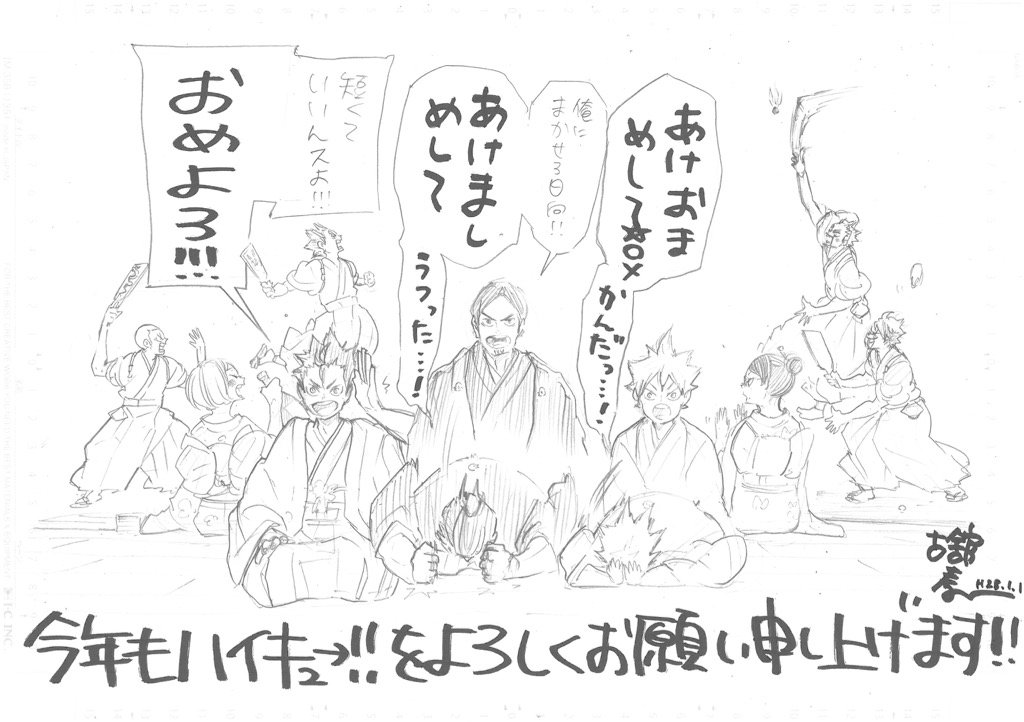 あけおま
めして☆〇×
かんだっ…!
俺に
まかせろ日向!!
あけまし
めして
うつった…!
短くて
いいんスよ!!!
おめよろ!!!
古舘春一
H28.1.1
今年もハイキュー!!をよろしくお願い申し上げます!!